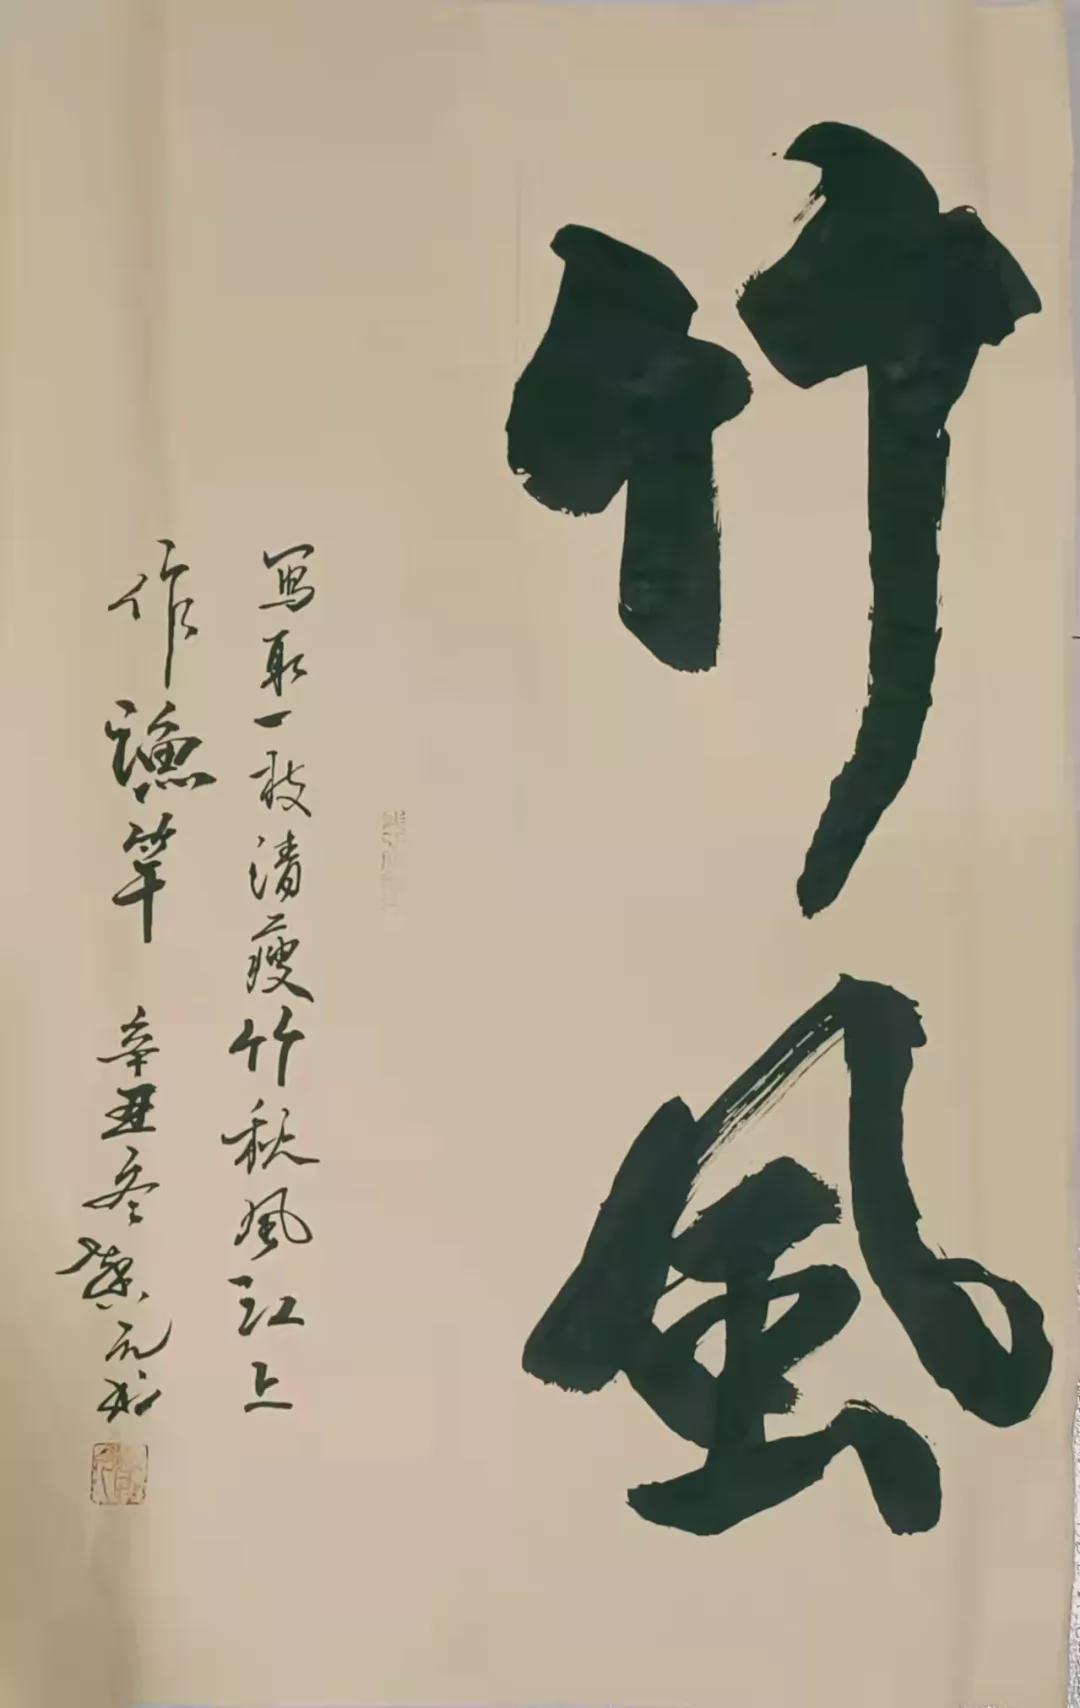 竹風
寫取一枝清瘦竹秋風江上
作漁竿 辛丑冬